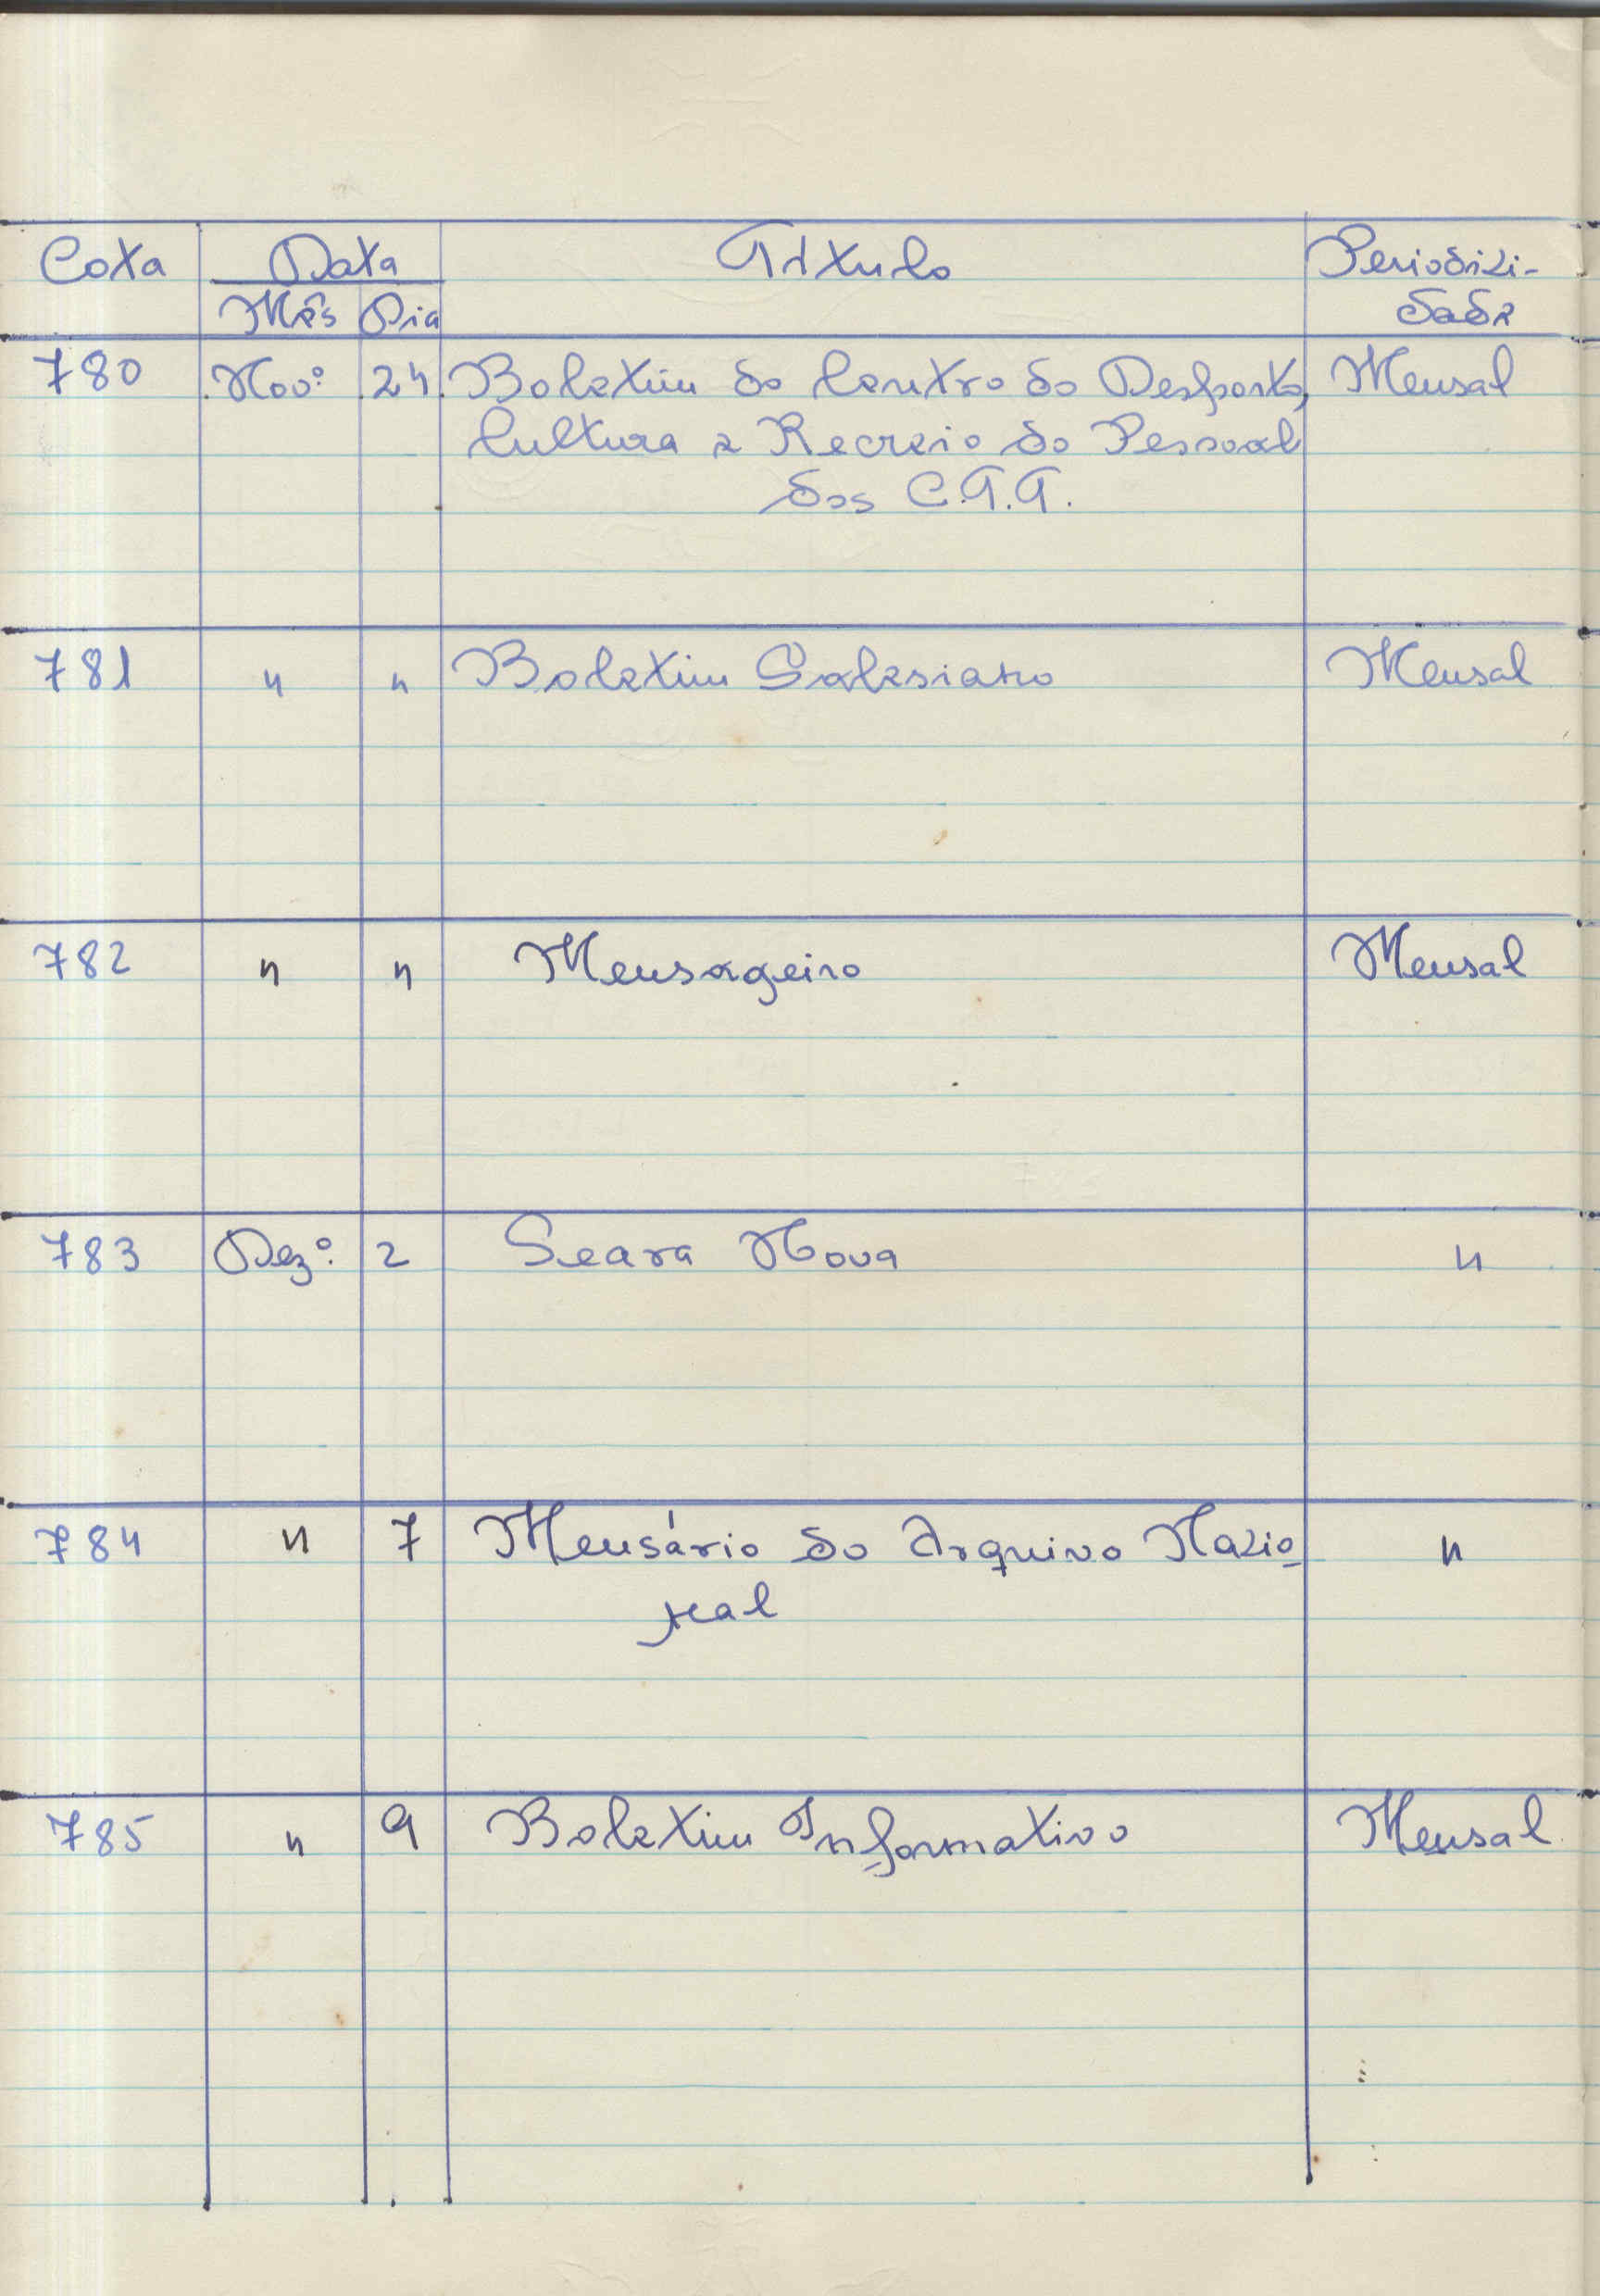 Cota Data Título Periodici-
Mês Dia dade
780 Nov.º 24 Boletim do Centro do Desporto, Mensal
Cultura e Recreio do Pessoal
dos C.T.T.
781 " " Boletim Salesiano Mensal
782 " " Mensageiro Mensal
783 Dez.º 2 Seara Nova "
784 " 7 Mensário do Arquivo Nacio-
nal "
785 " 9 Boletim Informativo Mensal